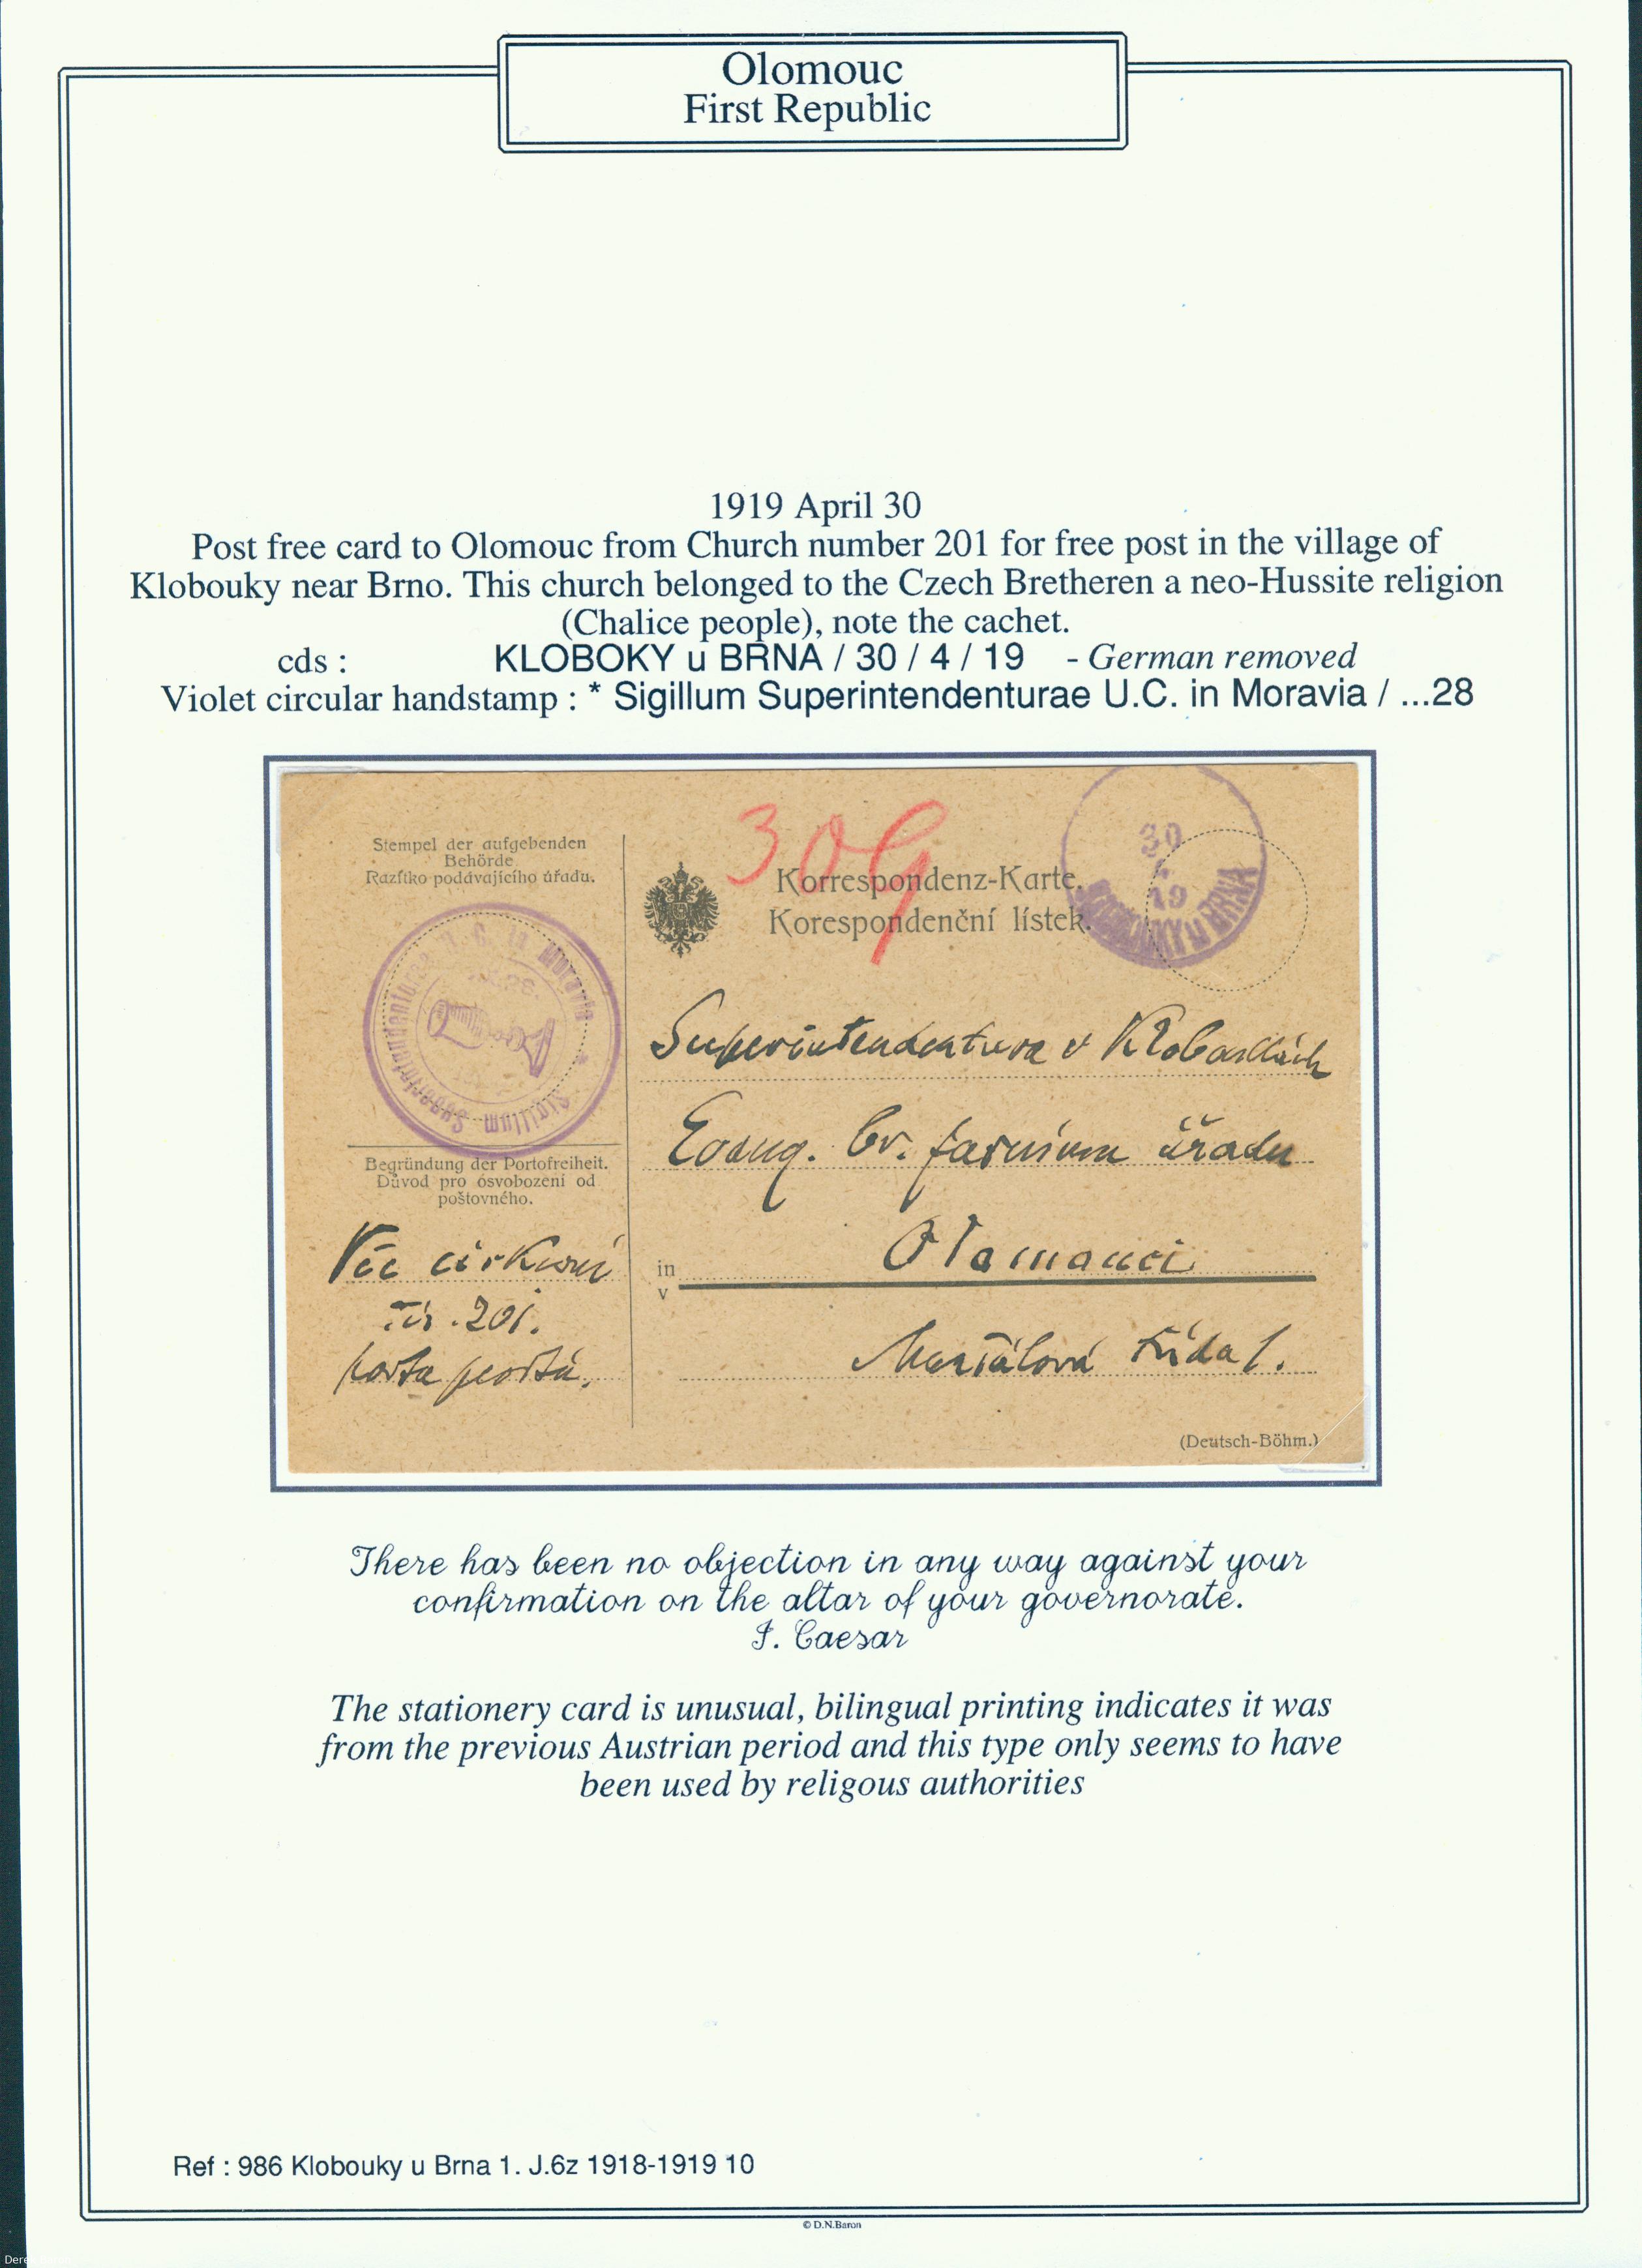 Olomouc
First Republic
1919 April 30
Post free card to Olomouc from Church number 201 for free post in the village of
Klobouky near Brno. This church belonged to the Czech Bretheren a neo-Hussite religion
(Chalice people), note the cachet.
cds : KLOBOKY u BRNA / 30 / 4 / 19 - German removed
Violet circular handstamp : * Sigillum Superintendenturae U.C. in Moravia / ...28
Stempel der aufgebenden
Behörde
Razítko podávajícího úřadu.
Sigillum Superintendenturae H. C. in Moravia *
309
Korrespondenz-Karte.
Korespondenční lístek.
30
19
KLOBOUKY u BRNA
Superintendentura v Kloboukách
Evang. br. farnímu úřadu
in
v
Olomouci
třída 1.
Begründung der Portofreiheit.
Důvod pro osvobození od
poštovného.
Věc církevní
čís. 201.
porta prostá.
(Deutsch-Böhm.)
There has been no objection in any way against your
confirmation on the altar of your governorate.
F. Caesar
The stationery card is unusual, bilingual printing indicates it was
from the previous Austrian period and this type only seems to have
been used by religous authorities
Ref : 986 Klobouky u Brna 1. J.6z 1918-1919 10
© D.N.Baron